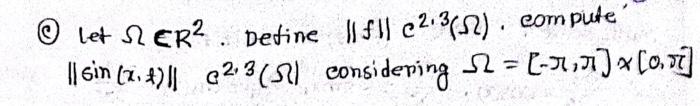 ⓒ Let Ω ∈ R². Define ||f|| c^{2,3}(Ω). compute
||sin(x,t)|| c^{2,3}(Ω) considering Ω = [-π, π] × [0, π]